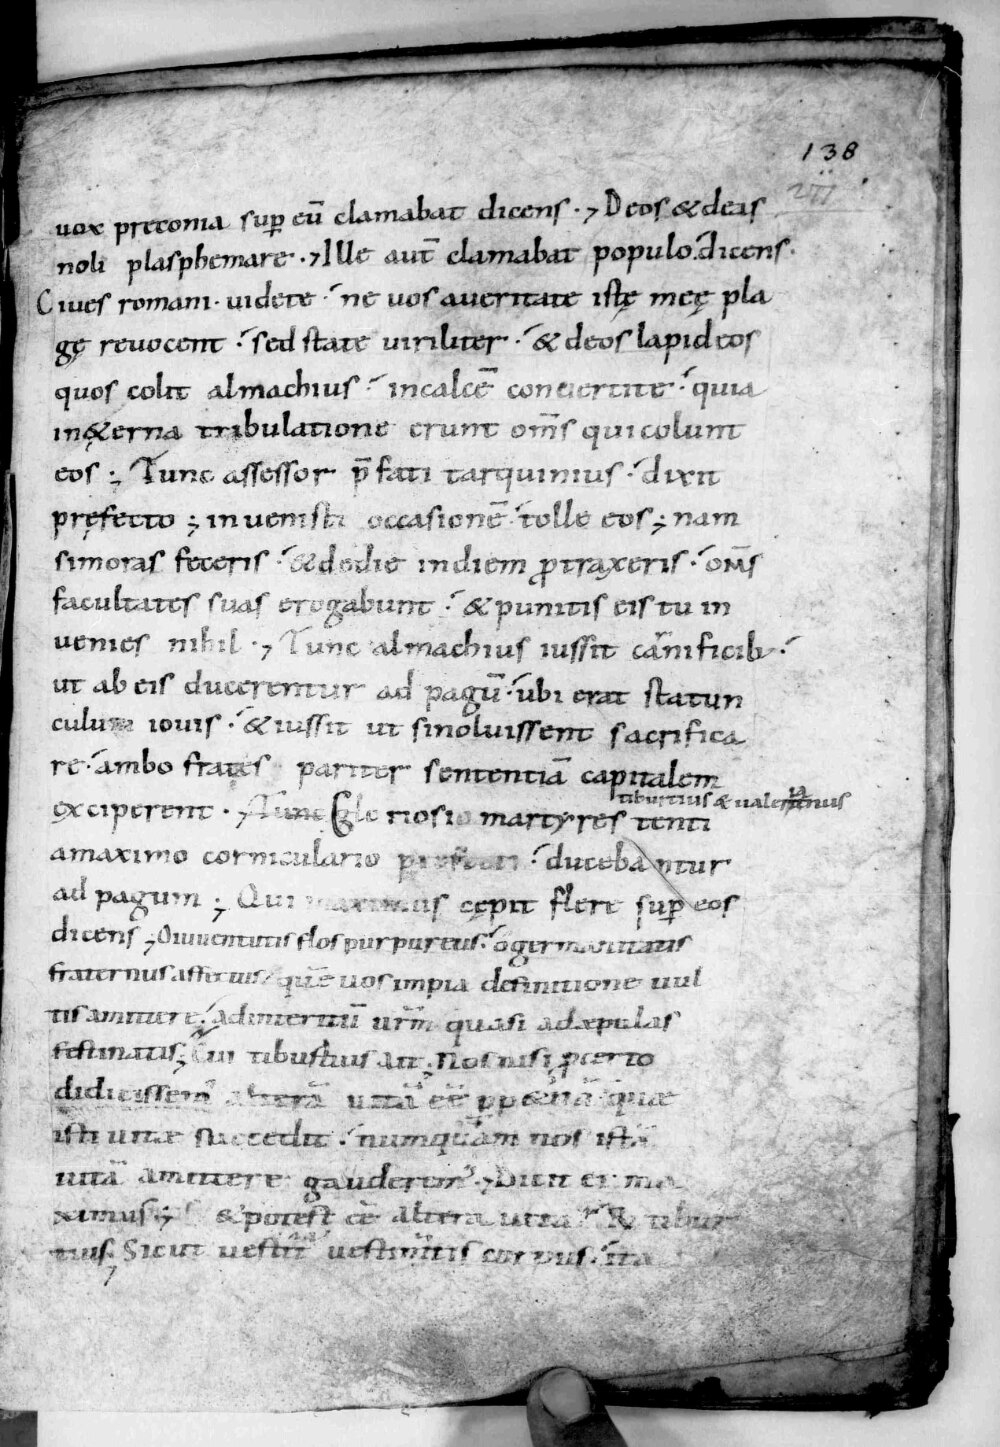 138
VII
uox preconia sup eū clamabat dicens ·, Deos & deas
noli plasphemare ·, Ille aut̄ clamabat populo dicens·
Ciues romani · uidete · ne uos aueritate istę meę pla
gę reuocent · sed state uiriliter · & deos lapideos
quos colit almachius · incalcē conuertite · quia
in&erna tribulatione erunt om̄s qui colunt
eos ; Tunc assessor p̄fati tarquinius · dixit
pręfecto ; inuenisti occasionē · tolle eos ; nam
simoras feceris · & dedie indiem ꝓtraxeris · om̄s
facultates suas erogabunt · & punitis eis tu in
uenies nihil ·, Tunc almachius iussit carnificib; ·
ut ab eis ducerentur ad pagū · ubi erat statun
culum iouis · & iussit ut sinoluissent sacrifica
re · ambo frates pariter sententiā capitalem
tiburtius & ualerianus
exciperent ·, Tunc gloriosi martyres tenti
amaximo corniculario · duceba ntur
ad pagum ; Qui maximus cępit flere sup eos
dicens , O iuuentutis flos purpureus · o germanitatis
fraternus affectus quē uos impia definitione uul
tis amittere · ad interitū urm̄ quasi adæpulas
festinatis ; Cui tibustius ait ; Nos nisi ꝓcerto
didicissem alterā uitā eē pp&uā · quæ
isti uitæ succedit · numquā nos istā
uitā amittere gauderem ·, Dicit ei ma
ximus ; & potest eē altera uita R tibur
tius ; Sicut uestit uestimtis corpus · ita